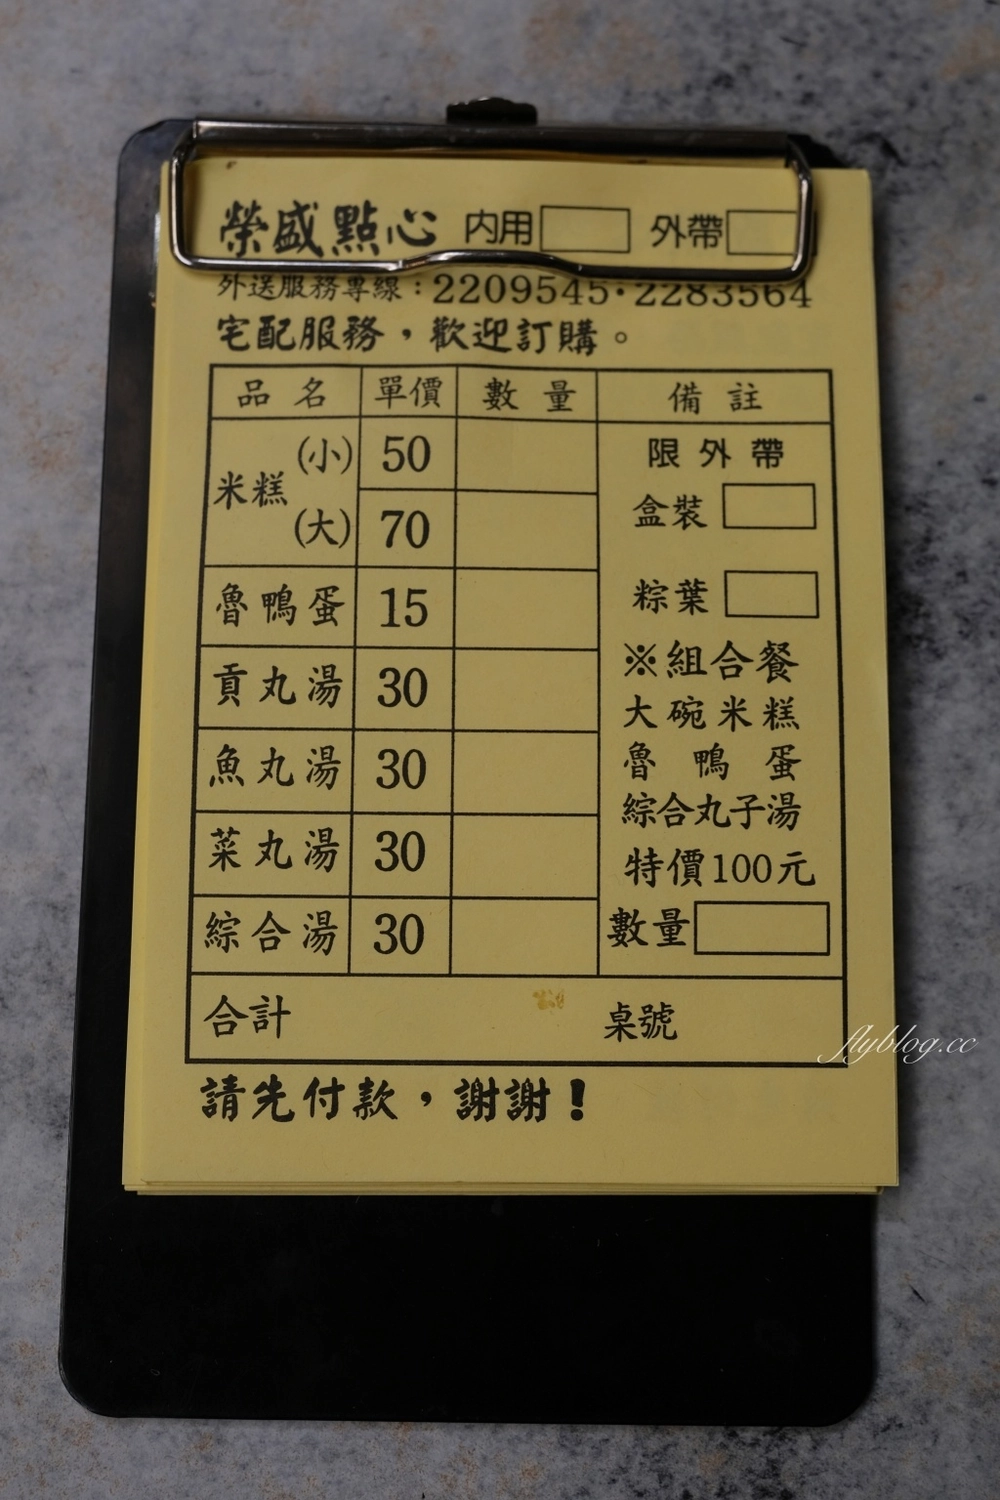 榮盛點心 內用 外帶
外送服務專線：2209545·2283564
宅配服務，歡迎訂購。
品名 單價 數量 備註
米糕 (小) 50
(大) 70
魯鴨蛋 15
貢丸湯 30
魚丸湯 30
菜丸湯 30
綜合湯 30
限外帶
盒裝
粽葉
※組合餐
大碗米糕
魯鴨蛋
綜合丸子湯
特價100元
數量
合計 桌號
請先付款，謝謝！
flyblog.cc